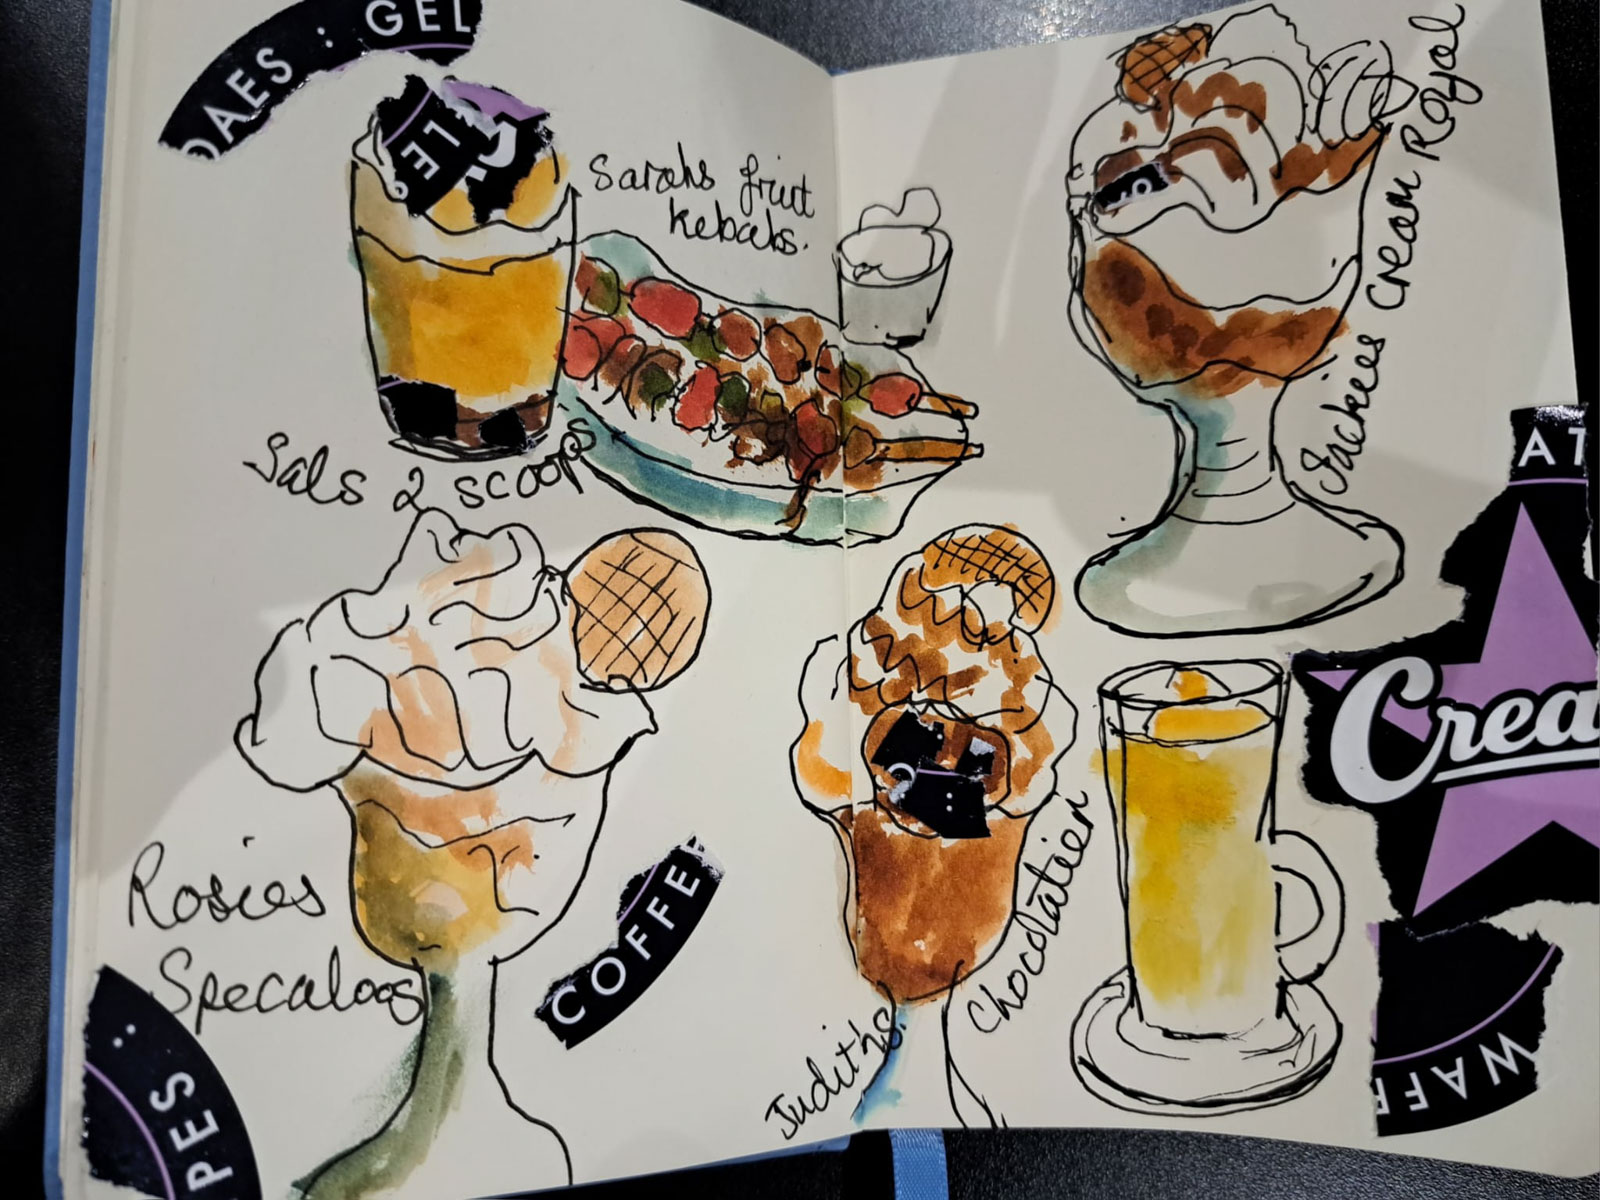 DAES : GEL
LE
Sarahs fruit
kebabs.
Sals 2 scoops
Jackies Cream Royal
AT
Crea
WAFF
Rosies
Specaloos
COFFE
PES :
Judiths
Chocolatier